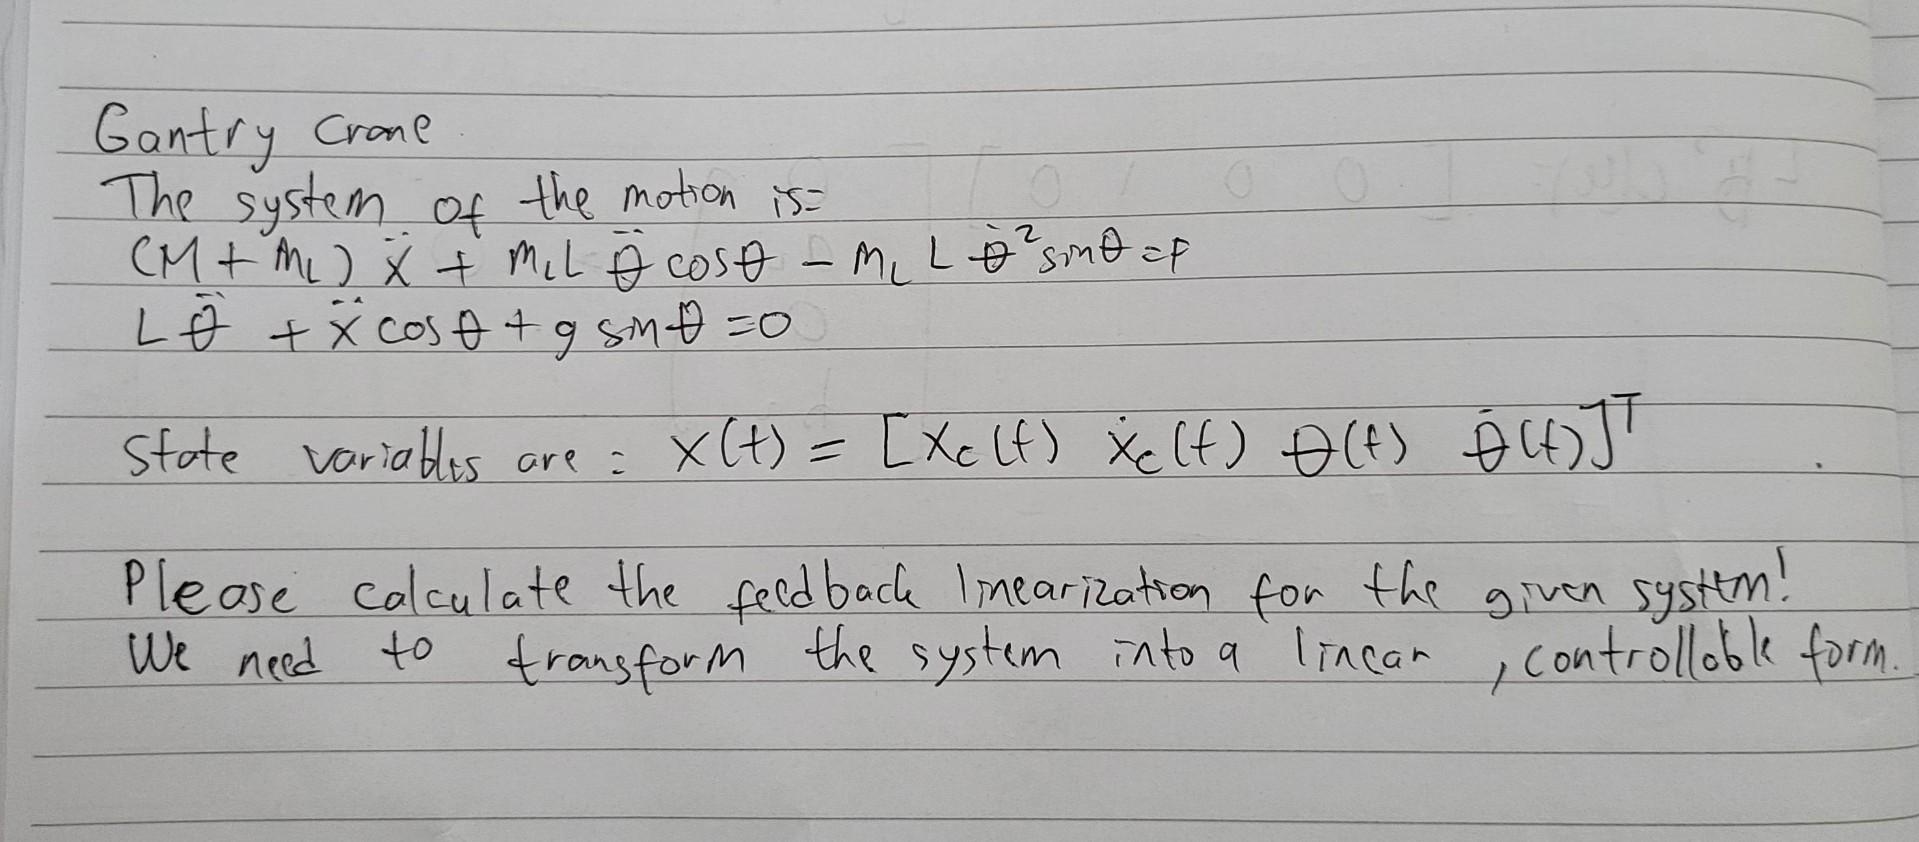 Gantry Crane
The system of the motion is:
(M + m_L) ẍ + m_L L θ̈ cosθ - m_L L θ̇² sinθ = F
L θ̈ + ẍ cosθ + g sinθ = 0
State variables are : x(t) = [x_c(t) ẋ_c(t) θ(t) θ̇(t)]^T
Please calculate the feedback linearization for the given system!
We need to transform the system into a linear , controllable form.